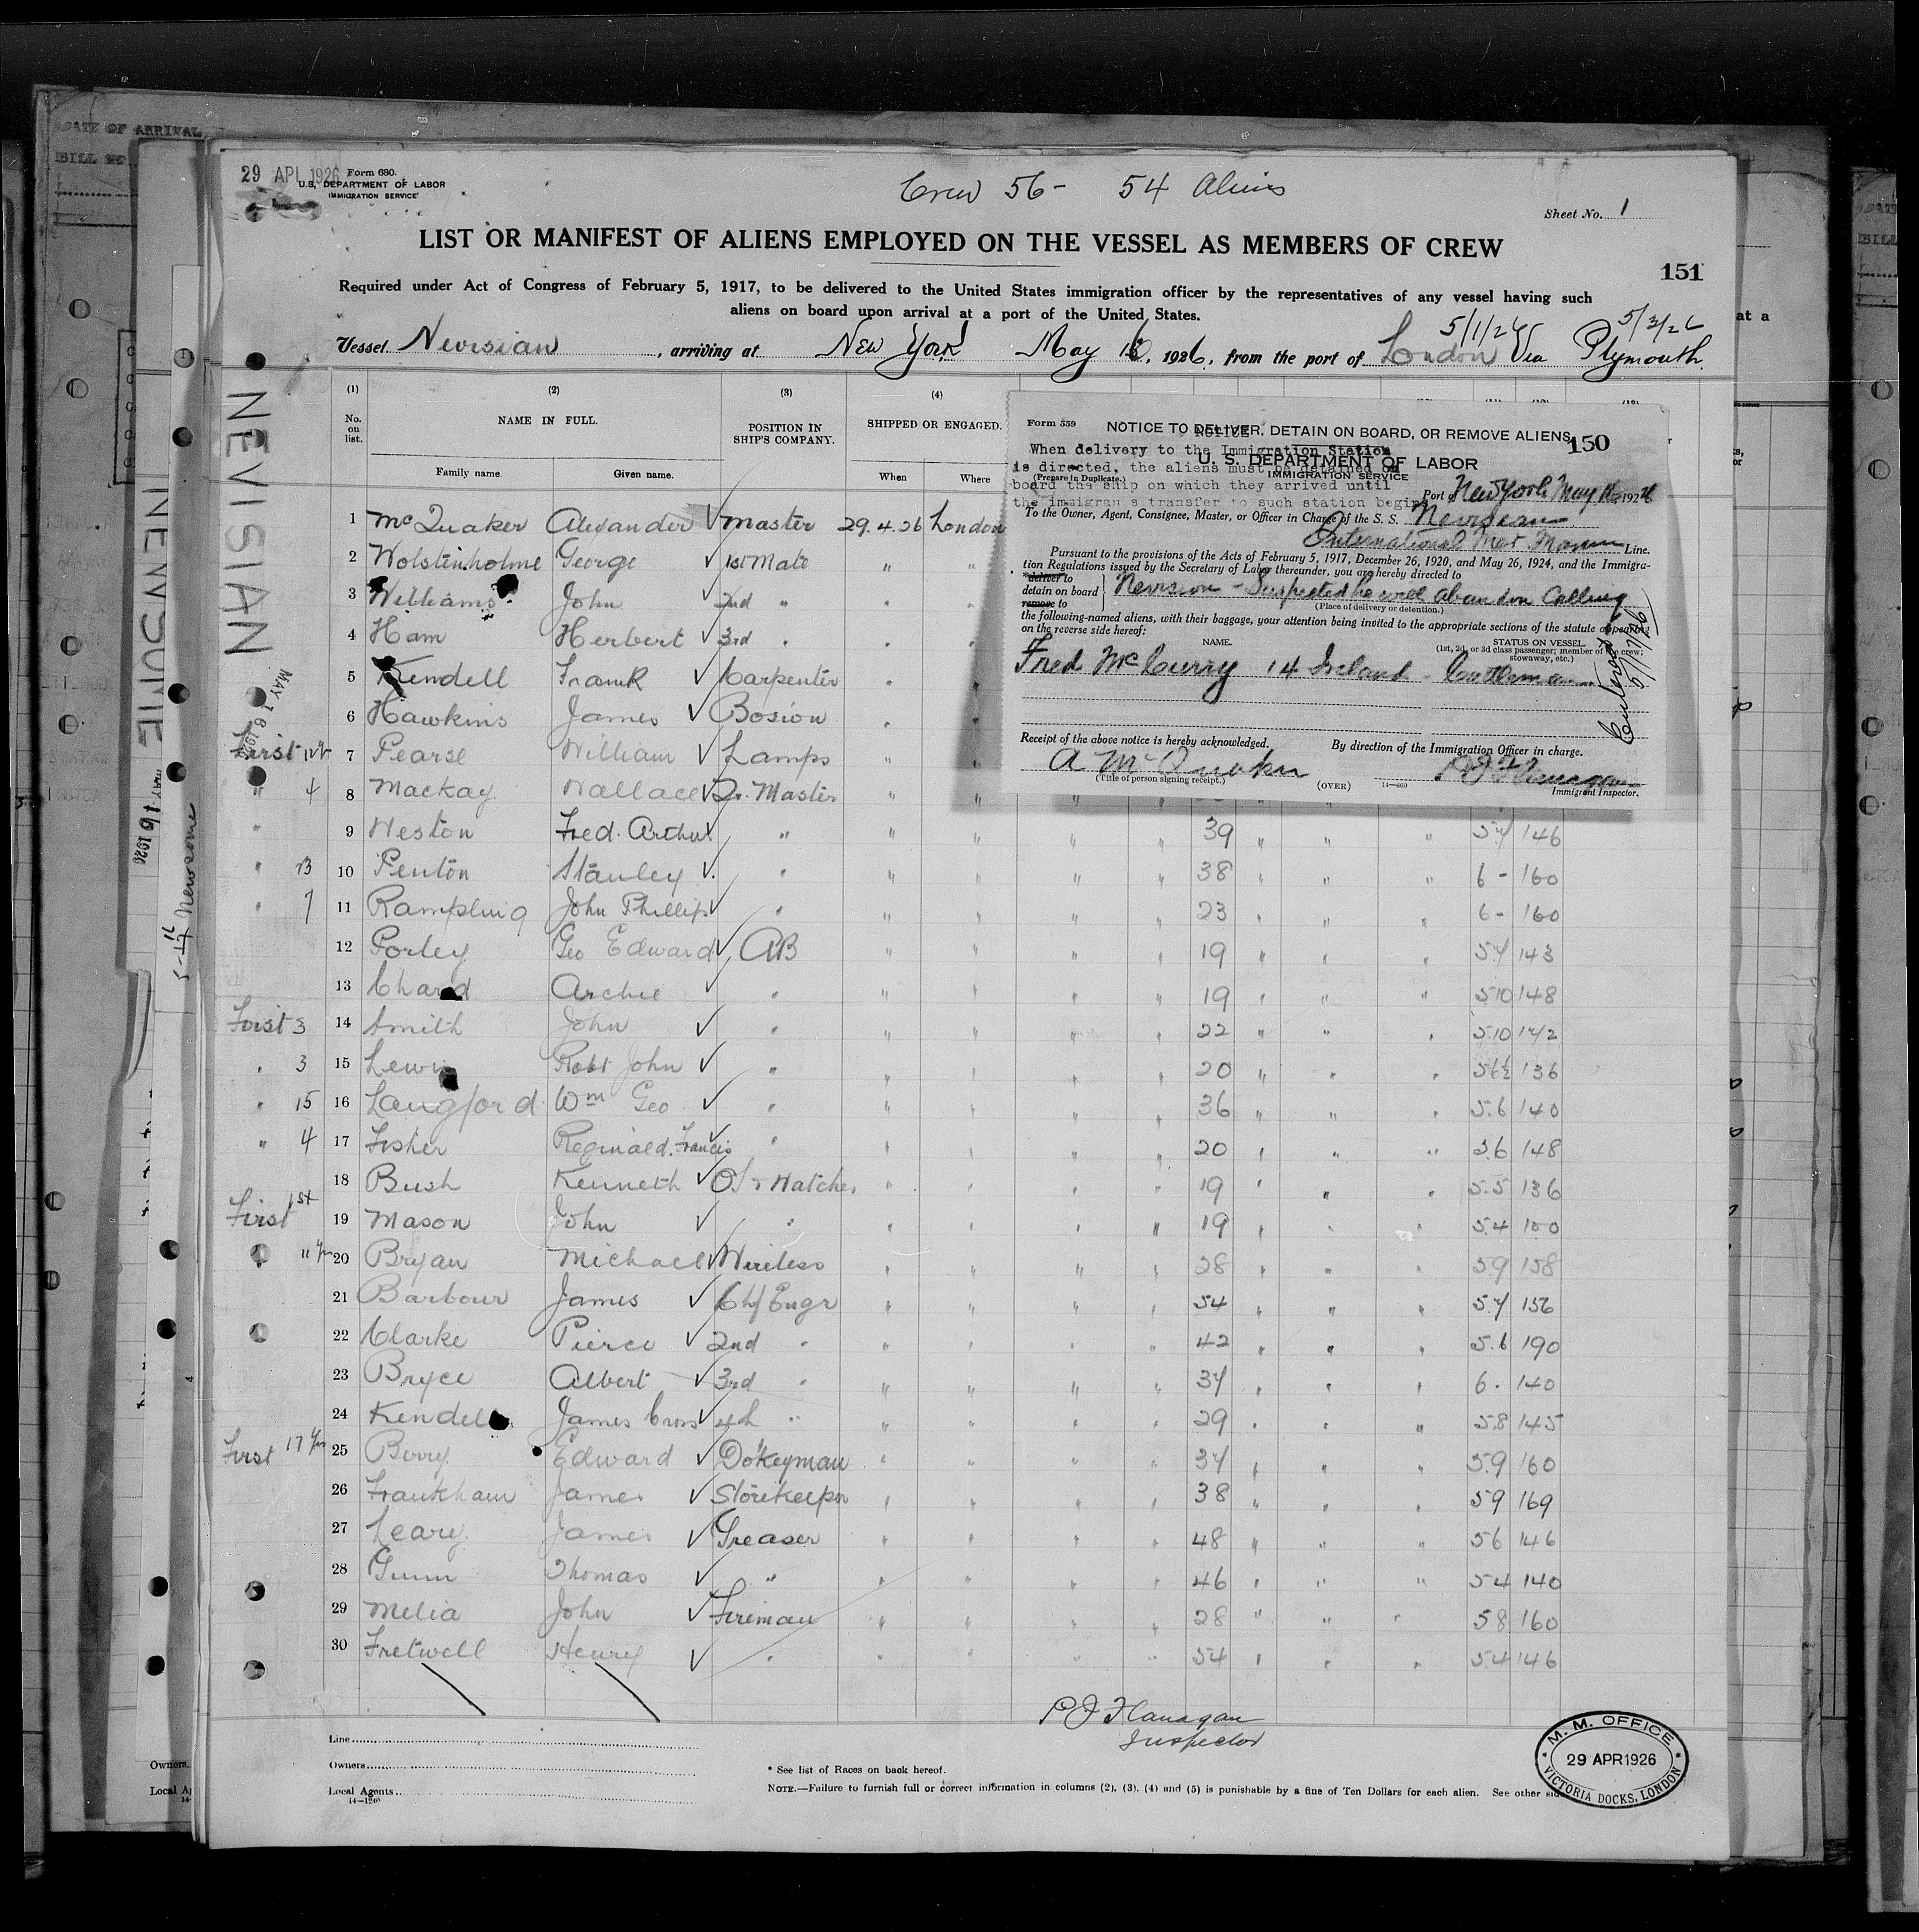 29 APL 1926 Form 680.
U.S. DEPARTMENT OF LABOR
IMMIGRATION SERVICE
Crew 56 - 54 Aliens
Sheet No. 1
LIST OR MANIFEST OF ALIENS EMPLOYED ON THE VESSEL AS MEMBERS OF CREW
151
Required under Act of Congress of February 5, 1917, to be delivered to the United States immigration officer by the representatives of any vessel having such
aliens on board upon arrival at a port of the United States.
Vessel Nevisian, arriving at New York May 16, 1926, from the port of London Via Plymouth
(1) (2) (3) (4)
No. on list. NAME IN FULL. POSITION IN SHIP'S COMPANY. SHIPPED OR ENGAGED.
Family name. Given name. When Where
1 McQuaker Alexander Master 29.4.26 London
2 Wolstenholme George 1st Mate " "
3 Williams John 2nd " " "
4 Ham Herbert 3rd " " "
5 Kendell Frank Carpenter " "
6 Hawkins James Bosion " "
First 7 Pearse William Lamps "
" 4 8 Mackay Wallace Qr. Master
" 9 Weston Fred. Arthur " " " " " 39 " " " 5.7 146
" 13 10 Penton Stanley " " " " " 38 " " " 6 - 160
" 7 11 Rampling John Phillip " " " " " 23 " " " 6 - 160
12 Porley Geo Edward AB " " " " 19 " " " 5.7 143
13 Chard Archie " " " " " 19 " " " 5.10 148
First 3 14 Smith John " " " " " 22 " " " 5.10 142
" 3 15 Lewis Robt John " " " " " 20 " " " 5 6½ 136
" 15 16 Langford Wm Geo " " " " " 36 " " " 5.6 140
" 4 17 Fisher Reginald. Francis " " " " " 20 " " " 5.6 148
18 Bush Kenneth " " " " 19 " " " 5.5 136
First 1st 19 Mason John " " " " " 19 " " " 5.4 100
" 11 20 Bryan Michael Wireless " " " " 28 " " " 5.9 158
21 Barbour James Chf Engr " " " " 54 " " " 5.7 156
22 Clarke Pierce 2nd " " " " " 42 " " " 5.6 190
23 Bryce Albert 3rd " " " " " 37 " " " 6 - 140
24 Kendell James Cross 4th " " " " " 29 " " " 5.8 145
First 17 yrs 25 Berry Edward Do'keyman " " " " 37 " " " 5.9 160
26 Frankham James Storekeeper " " " " 38 " " " 5.9 169
27 Leary James Greaser " " " " 48 " " " 5 6 146
28 Gunn Thomas " " " " " 46 " " " 5.4 140
29 Melia John Fireman " " " " 28 " " " 5 8 160
30 Fretwell Henry " " " " " 54 " " " 5.4 146
P J Flanagan
Inspector
Line
Owners
Local Agents
* See list of Races on back hereof.
NOTE.—Failure to furnish full or correct information in columns (2), (3), (4) and (5) is punishable by a fine of Ten Dollars for each alien. See other
M. M. OFFICE
29 APR 1926
VICTORIA DOCKS, LONDON
Form 559
NOTICE TO DELIVER, DETAIN ON BOARD, OR REMOVE ALIENS
150
NOTICE
When delivery to the Immigration Station
is directed, the aliens must be detained on
board the ship on which they arrived until
the immigran s transfer to such station begins
U. S. DEPARTMENT OF LABOR
IMMIGRATION SERVICE
(Prepare in Duplicate.)
Port of New York May 16 1926
To the Owner, Agent, Consignee, Master, or Officer in Charge of the S. S. Nevisian
International Mer. Marine Line.
Pursuant to the provisions of the Acts of February 5, 1917, December 26, 1920, and May 26, 1924, and the Immigra-
tion Regulations issued by the Secretary of Labor thereunder, you are hereby directed to
*deliver to
detain on board
remove to
Nevisian - Suspected he will abandon Calling
(Place of delivery or detention.)
the following-named aliens, with their baggage, your attention being invited to the appropriate sections of the statute appearing
on the reverse side hereof:
NAME. STATUS ON VESSEL
(1st, 2d, or 3d class passenger; member of the crew;
stowaway, etc.)
Fred McCurry 14 Ireland - Cattleman
Entered 5/17/26
Receipt of the above notice is hereby acknowledged.
By direction of the Immigration Officer in charge.
A McQuaker
P J Flanagan
(Title of person signing receipt.)
(OVER)
14—660
Immigrant Inspector.
NEVISIAN
MAY 16 192
NEWSOME
MAY 16 1926
Newsome
DATE OF ARRIVAL
Owners.
5/1/26
5/2/26
14—1240